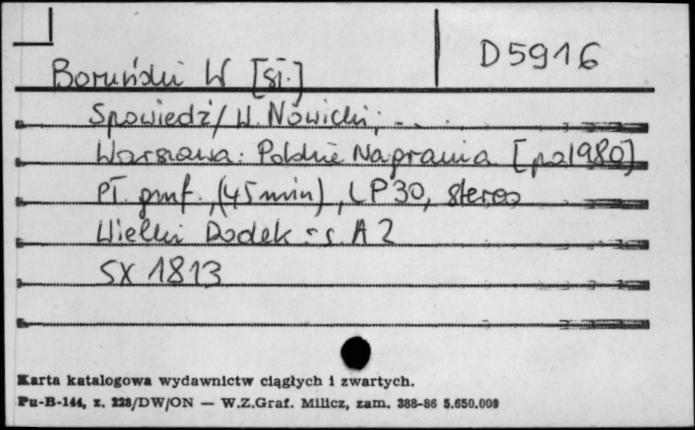 D5916
Boruński W [sł.]
Spowiedź / W. Nowicki; - .
Warszawa: Polskie Nagrania [po1980]
Pł. gmf., (45 min), LP30, stereo
Wielki Dodek - s. A 2
SX 1813
Karta katalogowa wydawnictw ciągłych i zwartych.
Pu-B-144, z. 228/DW/ON — W.Z.Graf. Milicz, zam. 388-86 5.650.000